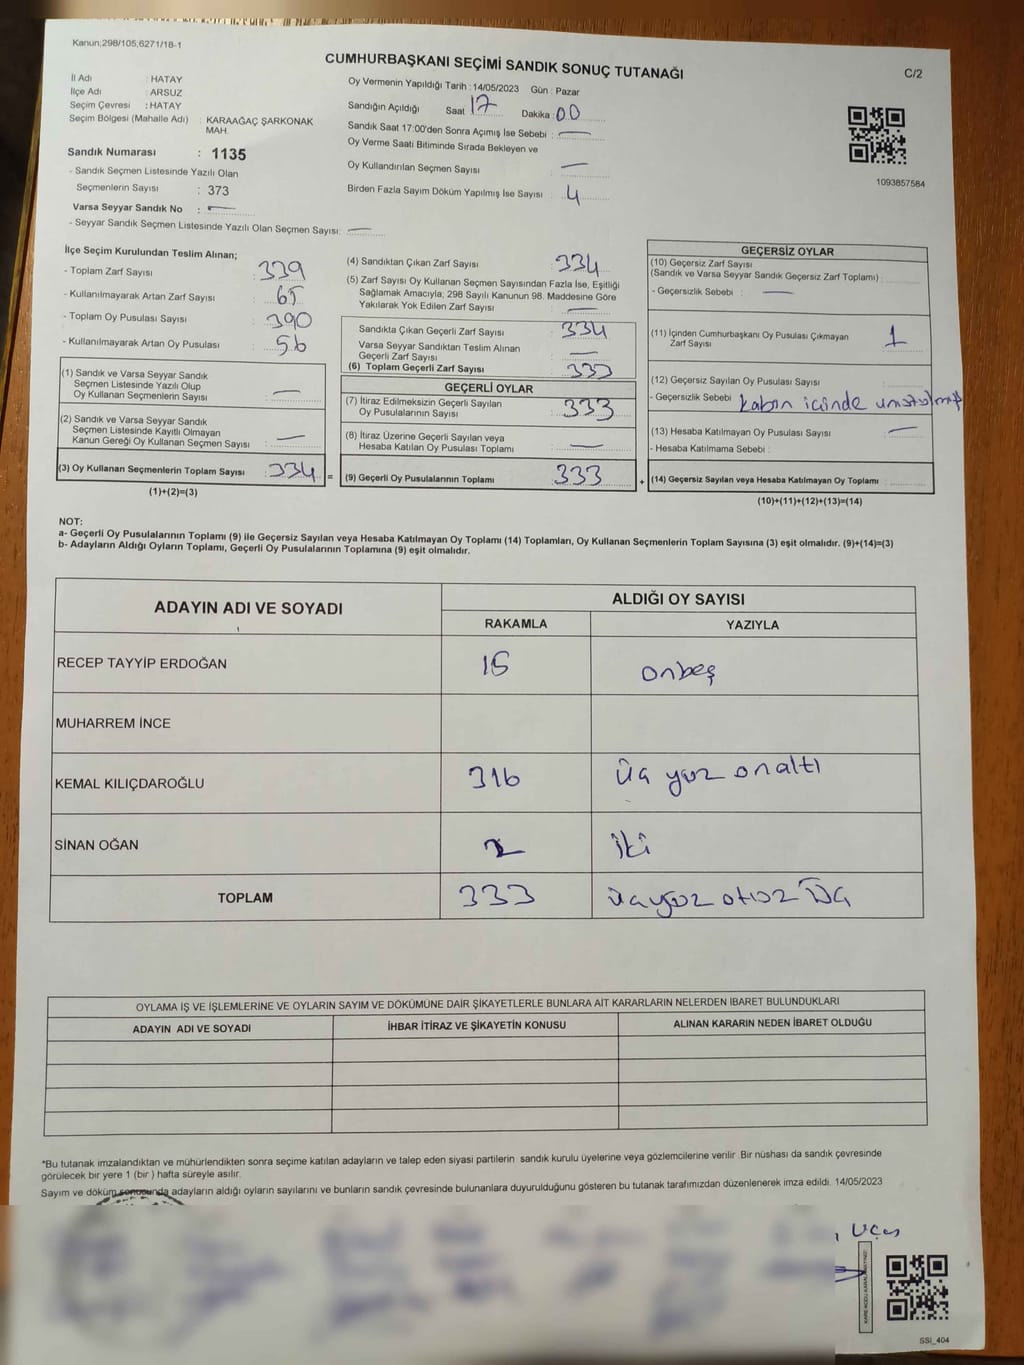 Kanun;298/105,6271/18-1
CUMHURBAŞKANI SEÇİMİ SANDIK SONUÇ TUTANAĞI
C/2
İl Adı : HATAY
İlçe Adı : ARSUZ
Seçim Çevresi : HATAY
Seçim Bölgesi (Mahalle Adı) : KARAAĞAÇ ŞARKONAK MAH.
Sandık Numarası : 1135
- Sandık Seçmen Listesinde Yazılı Olan
Seçmenlerin Sayısı : 373
Varsa Seyyar Sandık No : —
- Seyyar Sandık Seçmen Listesinde Yazılı Olan Seçmen Sayısı: —
Oy Vermenin Yapıldığı Tarih : 14/05/2023 Gün : Pazar
Sandığın Açıldığı Saat 17 Dakika : 00
Sandık Saat 17:00'den Sonra Açımış İse Sebebi : —
Oy Verme Saati Bitiminde Sırada Bekleyen ve
Oy Kullandırılan Seçmen Sayısı —
Birden Fazla Sayım Döküm Yapılmış İse Sayısı : 4
1093857584
İlçe Seçim Kurulundan Teslim Alınan;
- Toplam Zarf Sayısı : 339
- Kullanılmayarak Artan Zarf Sayısı : 65
- Toplam Oy Pusulası Sayısı : 390
- Kullanılmayarak Artan Oy Pusulası : 56
(1) Sandık ve Varsa Seyyar Sandık
Seçmen Listesinde Yazılı Olup
Oy Kullanan Seçmenlerin Sayısı : —
(2) Sandık ve Varsa Seyyar Sandık
Seçmen Listesinde Kayıtlı Olmayan
Kanun Gereği Oy Kullanan Seçmen Sayısı : —
(3) Oy Kullanan Seçmenlerin Toplam Sayısı : 334 =
(1)+(2)=(3)
(4) Sandıktan Çıkan Zarf Sayısı : 334
(5) Zarf Sayısı Oy Kullanan Seçmen Sayısından Fazla İse, Eşitliği
Sağlamak Amacıyla; 298 Sayılı Kanunun 98. Maddesine Göre
Yakılarak Yok Edilen Zarf Sayısı : —
Sandıkta Çıkan Geçerli Zarf Sayısı : 334
Varsa Seyyar Sandıktan Teslim Alınan
Geçerli Zarf Sayısı : —
(6) Toplam Geçerli Zarf Sayısı : 333
GEÇERLİ OYLAR
(7) İtiraz Edilmeksizin Geçerli Sayılan
Oy Pusulalarının Sayısı : 333
(8) İtiraz Üzerine Geçerli Sayılan veya
Hesaba Katılan Oy Pusulası Toplamı : —
(9) Geçerli Oy Pusulalarının Toplamı : 333 +
GEÇERSİZ OYLAR
(10) Geçersiz Zarf Sayısı
(Sandık ve Varsa Seyyar Sandık Geçersiz Zarf Toplamı) :
- Geçersizlik Sebebi : —
(11) İçinden Cumhurbaşkanı Oy Pusulası Çıkmayan
Zarf Sayısı : 1
(12) Geçersiz Sayılan Oy Pusulası Sayısı :
- Geçersizlik Sebebi : kabin içinde unutulmuş
(13) Hesaba Katılmayan Oy Pusulası Sayısı : —
- Hesaba Katılmama Sebebi :
(14) Geçersiz Sayılan veya Hesaba Katılmayan Oy Toplamı :
(10)+(11)+(12)+(13)=(14)
NOT:
a- Geçerli Oy Pusulalarının Toplamı (9) ile Geçersiz Sayılan veya Hesaba Katılmayan Oy Toplamı (14) Toplamları, Oy Kullanan Seçmenlerin Toplam Sayısına (3) eşit olmalıdır. (9)+(14)=(3)
b- Adayların Aldığı Oyların Toplamı, Geçerli Oy Pusulalarının Toplamına (9) eşit olmalıdır.
ADAYIN ADI VE SOYADI ALDIĞI OY SAYISI
RAKAMLA YAZIYLA
RECEP TAYYİP ERDOĞAN 15 onbeş
MUHARREM İNCE
KEMAL KILIÇDAROĞLU 316 üç yüz onaltı
SİNAN OĞAN 2 iki
TOPLAM 333 üçyüz otuz Üç
OYLAMA İŞ VE İŞLEMLERİNE VE OYLARIN SAYIM VE DÖKÜMÜNE DAİR ŞİKAYETLERLE BUNLARA AİT KARARLARIN NELERDEN İBARET BULUNDUKLARI
ADAYIN ADI VE SOYADI İHBAR İTİRAZ VE ŞİKAYETİN KONUSU ALINAN KARARIN NEDEN İBARET OLDUĞU
*Bu tutanak imzalandıktan ve mühürlendikten sonra seçime katılan adayların ve talep eden siyasi partilerin sandık kurulu üyelerine veya gözlemcilerine verilir .Bir nüshası da sandık çevresinde
görülecek bir yere 1 (bir ) hafta süreyle asılır.
Sayım ve döküm sonucunda adayların aldığı oyların sayılarını ve bunların sandık çevresinde bulunanlara duyurulduğunu gösteren bu tutanak tarafımızdan düzenlenerek imza edildi. 14/05/2023
SSI_404